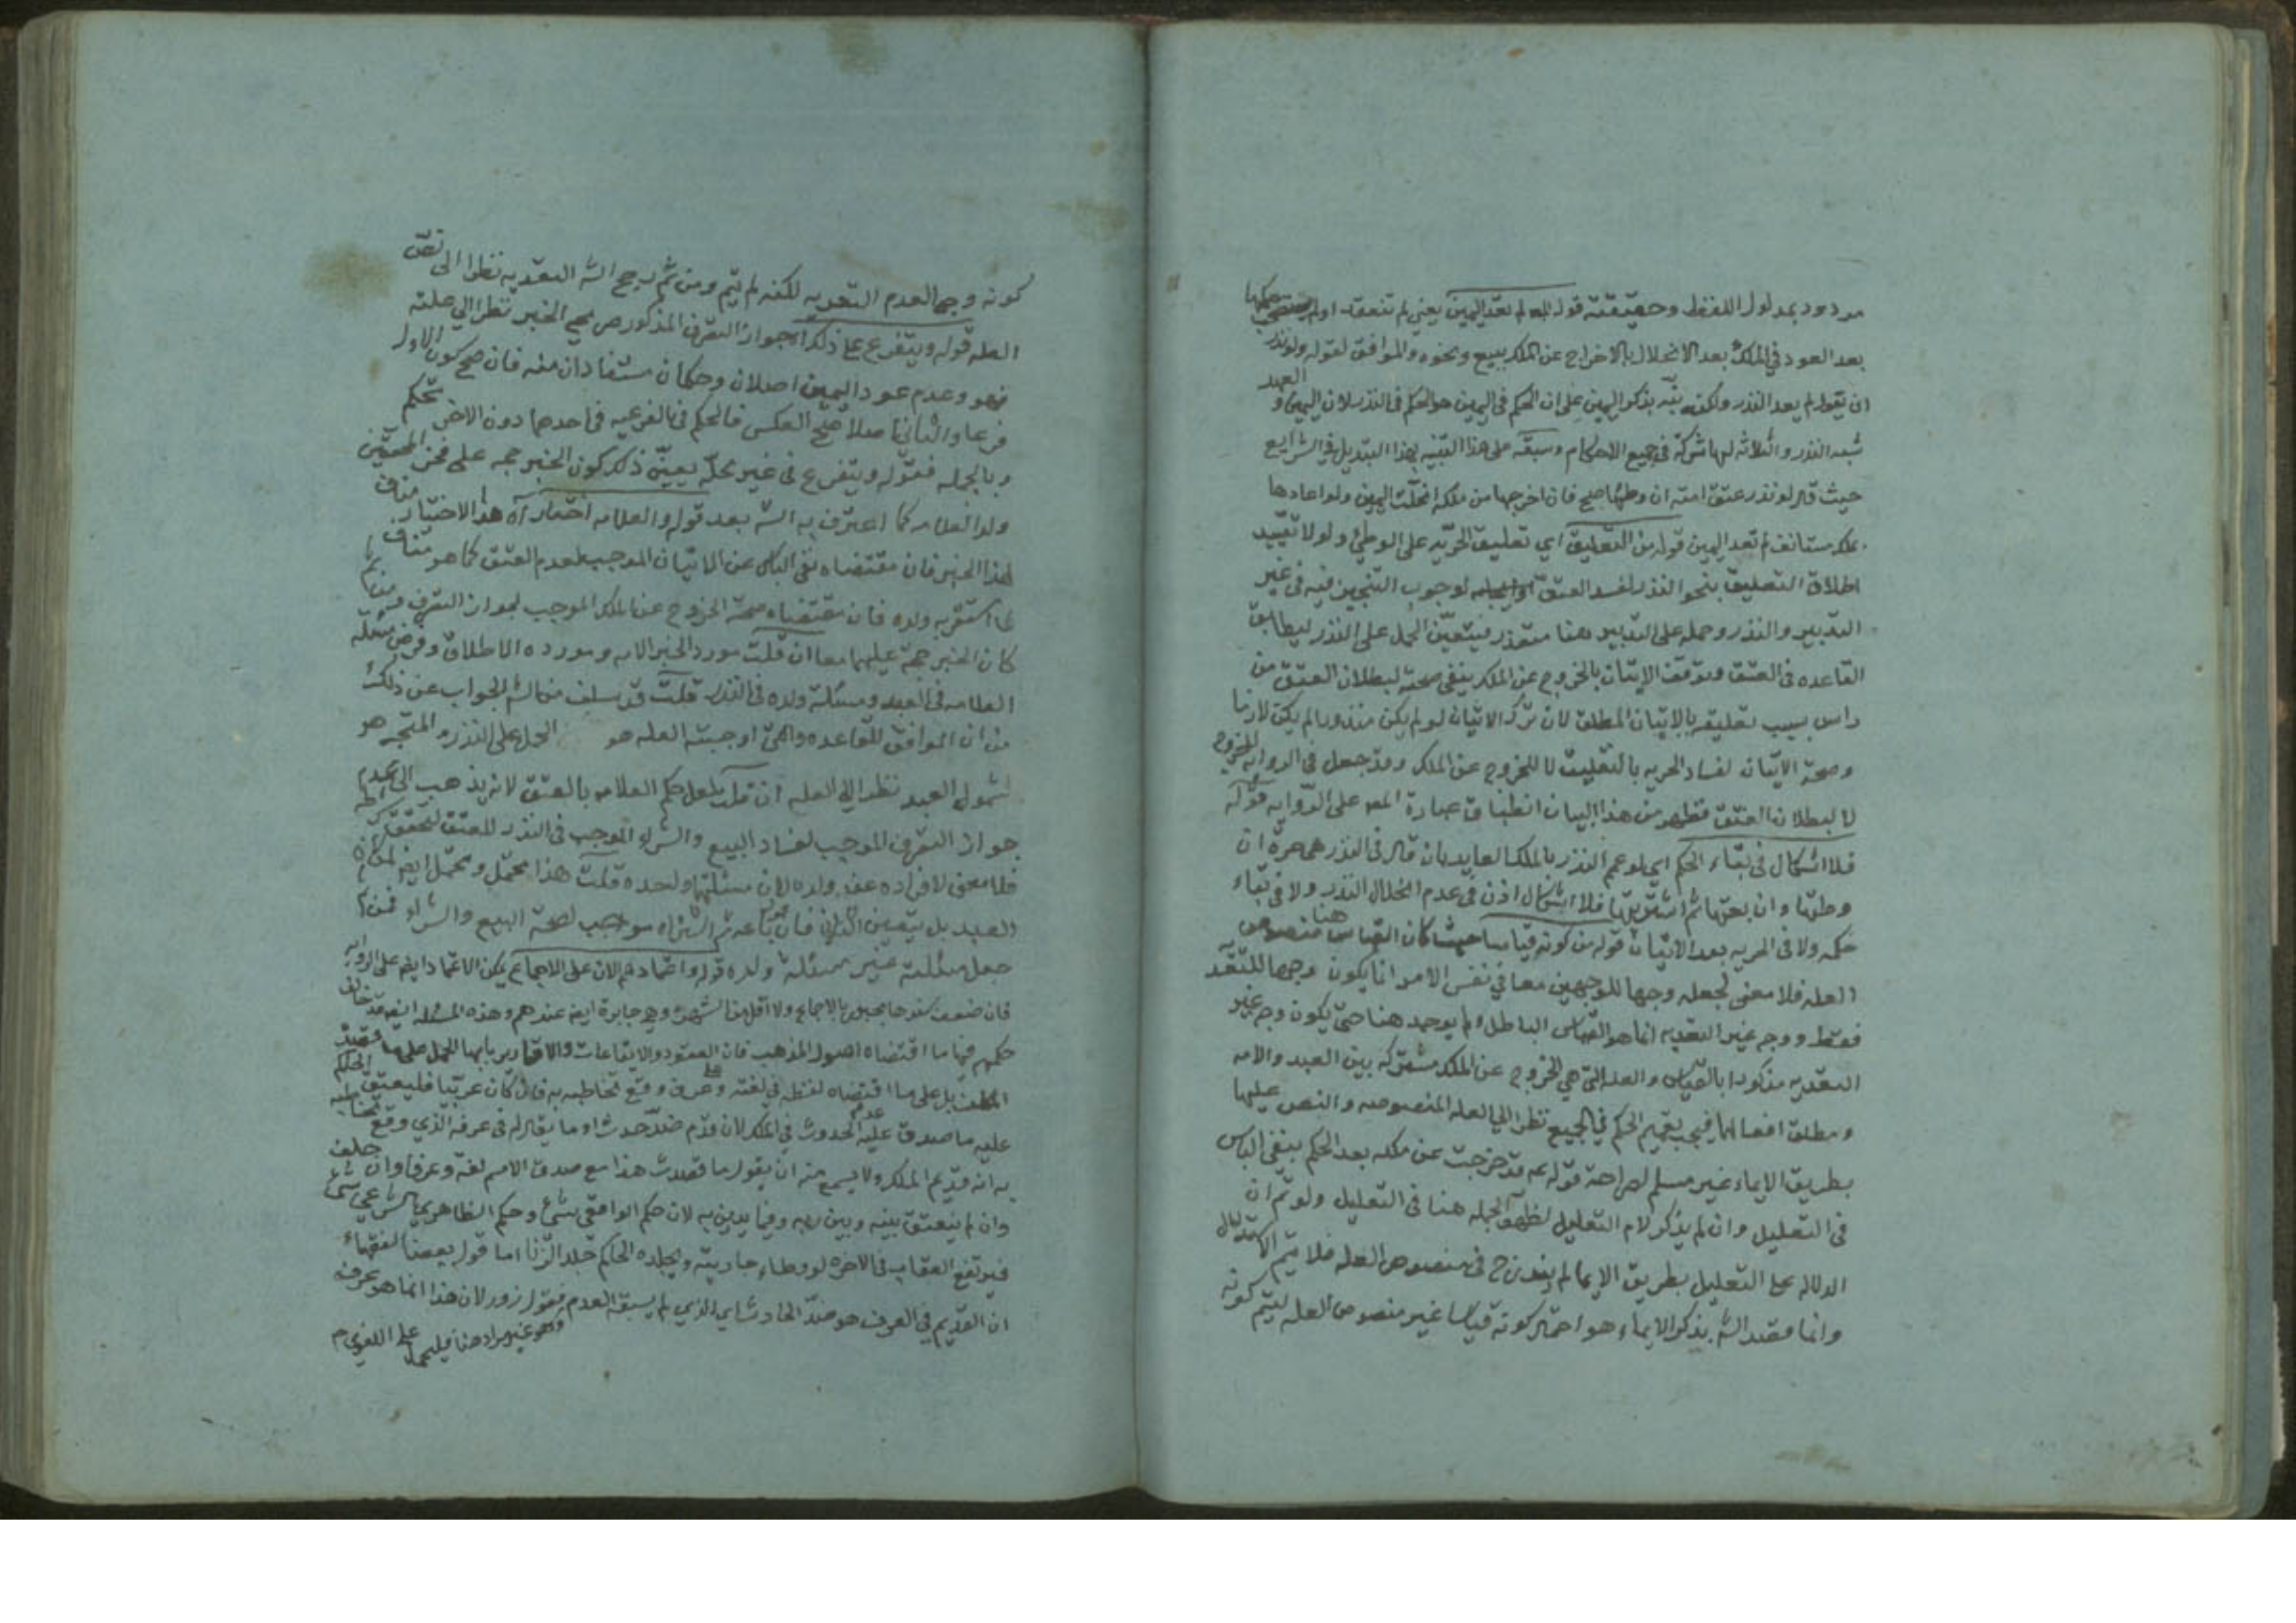 مردود بمدلول اللفظ وحقيقته قوله لم تعد اليمين يعني لم تنعقد او لم
بعد العود في الملك بعد الانحلال بالاخراج عن الملك ببيع ونحوه والموافق لقوله ولو نذر
ان يقول لم يعد النذر ولكنه نبّه بذكر اليمين على ان الحكم في اليمين هو الحكم في النذر لان اليمين و العهد
شبه النذر والثلاثة لها شركة في جميع الاحكام وسبقه على هذا التنبيه بهذا التبديل في الشرايع
حيث قال لو نذر عتق امته ان وطئها صح فان اخرجها من ملكه انحلّت اليمين ولو اعادها
بملك مستانف لم تعد اليمين قوله من التعليق اي تعليق الحرّيه على الوطئ ولولا تقييد
اطلاق التعليق بنحو النذر لفسد العتق لوجوب التنجيز فيه في غير
التدبير والنذر وحمله على التدبير هنا متعذر فيتعيّن الحمل على النذر ليطابق
القاعده في العتق وتوقف الاتيان بالخروج عن الملك ينفي صحته لبطلان العتق من
راس بسبب تعليقه بالاتيان المطلق لان ترك الاتيان لو لم يكن منذورا لم يكن لازما
وصحة الاتيان لفساد الحريه بالتعليق لا للخروج عن الملك وقد جعل في الروايه للخروج
لا لبطلان العتق فظهر من هذا البيان انطباق عبارة المص على الرّوايه قوله
فلا اشكال في بقاء الحكم اي لو عمم النذر بالملك العايد بان قال في النذر هي حرة ان
وطئتها وان بعتها ثم اشتريتها فلا اشكال اذن في عدم انحلال النذر ولا في بقاء
حكمه ولا في الحريه بعد الاتيان قوله من كونه قياسا حيث كان القياس هنا منصوص
العله فلا معنى لجعله وجها للوجهين معا في نفس الامر انما يكون وجها للتعديه
فقط ووجه غير التعديه انما هو القياس الباطل ولم يوجد هنا حتى يكون وجه غير
التعديه مذكورا بالقياس والعله التي هي الخروج عن الملك مشتركه بين العبد والامه
ومطلق افعالهما فيجب تعميم الحكم في الجميع نظرا الى العله المنصوصه والنص عليها
بطريق الايماء غير مسلم لصراحة قوله عم قد خرجت عن ملكه بعد الحكم بنفي الباس
في التعليل وان لم يذكر لام التعليل لظهور الجمله هنا في التعليل ولو تم ان
الدلاله على التعليل بطريق الايما لم يندرج في منصوص العله فلا يتم الاستدلال
وانما مقصد الش بذكر الايماء هو احتمال كونه قياسا غير منصوص العله ليتم كونه
كونه وجها لعدم التعديه لكنه لم يتم ومن ثم رجح الش التعديه نظرا الى نص
العله قوله ويتفرع على ذلك اه جواز التصرف المذكور صريح الخبر نظرا الى علته
فهو وعدم عود اليمين اصلان وحكمان مستفادان منه فان صح كون الاول
فرعا والثاني اصلا صح العكس فالحكم في بالفرعيه في احدهما دون الاخر تحكم
وبالجمله فقوله ويتفرع في غير محلّه يعيّن ذلك كون الخبر حجه على فخر المحققين
ولد العلامه كما اعترف به الش بعد قوله والعلامه اختار اه هذا الاختيار مناف
لهذا الخبر فان مقتضاه نفي الباس عن الاتيان الموجب لعدم العتق كما هو مناف
لما استقر به ولده فان مقتضاه صحة الخروج عن الملك الموجب لجواز التصرف ومن ثم
كان الخبر حجة عليهما معا ان قلت مورد الخبر الامه ومورده الاطلاق وفرض مسئله
العلامه في العبد ومسئلة ولده في النذر قلت قد سلف من الش الجواب عن ذلك
من ان الموافق للقاعده والحق اوجبته العله هو الحمل على النذر والمتّجه هو
شمول العبد نظرا الى العله ان قلت لعل حكم العلامه بالعتق لانه يذهب الى عدم
جواز التصرف الموجب لفساد البيع والشراء الموجب في النذر للعتق لتحقق
فلا معنى لافراده عن ولده لان مسئلتهما واحده قلت هذا محتمل ويحتمل ايض
العبد بل يتعين الثاني فان باعه ثم اشتراه موجب لصحة البيع والشراء فمن ثم
جعل مسئلته غير مسئلة ولده قوله واعتمادهم الان على الاجماع يمكن الاعتماد ايض على الروايه
فان ضعف سندها مجبور بالاجماع ولا اقل من الشهرة وهي جابرة ايض عندهم وهذه المسئله ايض قد خالف
حكمهم فيها ما اقتضاه اصول المذهب فان العقود والايقاعات والاقارير بابها الحمل على ما قصد
المطلق بل على ما اقتضاه لفظه في لغته وعرف وقع تخاطبه به فان كان عربيا فليعتق الحكم
عليه ما صدق عليه عدم الحدوث في الملك لان قدم ضدّ حدث او ما يقال له في عرفه الذي وقع تخاطبه
به انه قديم الملك ولا يسمع منه ان يقول ما قصدت هذا مع صدق الاسم لغة وعرفا وان حلف
وان لم ينعتق بينه وبين ربه وفيما يدين به لان حكم الواقعي شئ وحكم الظاهر
فيرتفع العقاب في الاخره لو وطاء جاريته ويجلده الحاكم جلد الزنا اما قول بعض الفقهاء
ان القديم في العرف هو ضدّ الحادث اي الذي لم يسبقه العدم فقول زور لان هذا انما هو عرف
وهو غير مراد هنا فليحمل على اللغوي م